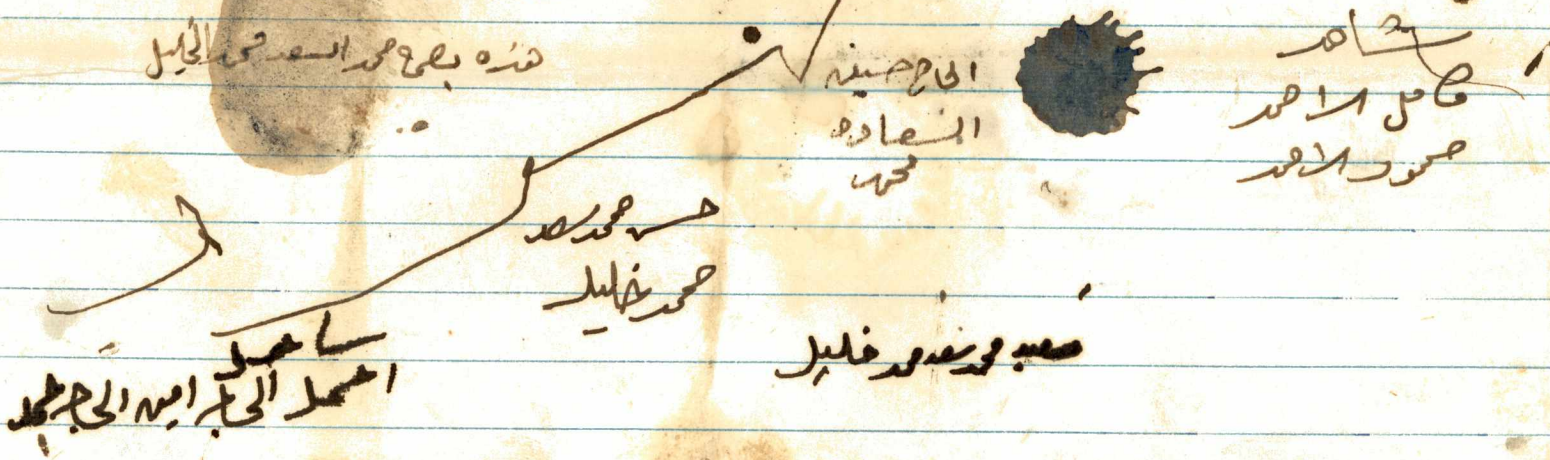 شاهد
كامل الاحمد
محمود الاحمد
الحاج حسين
السعاده
محمد
هذه بصمة محمد السعد محمد الخليل
حسن محمد سعد
محمد خليل
محمد سعد محمد خليل
شاهد
احمد الحاج امين الحاج محمد